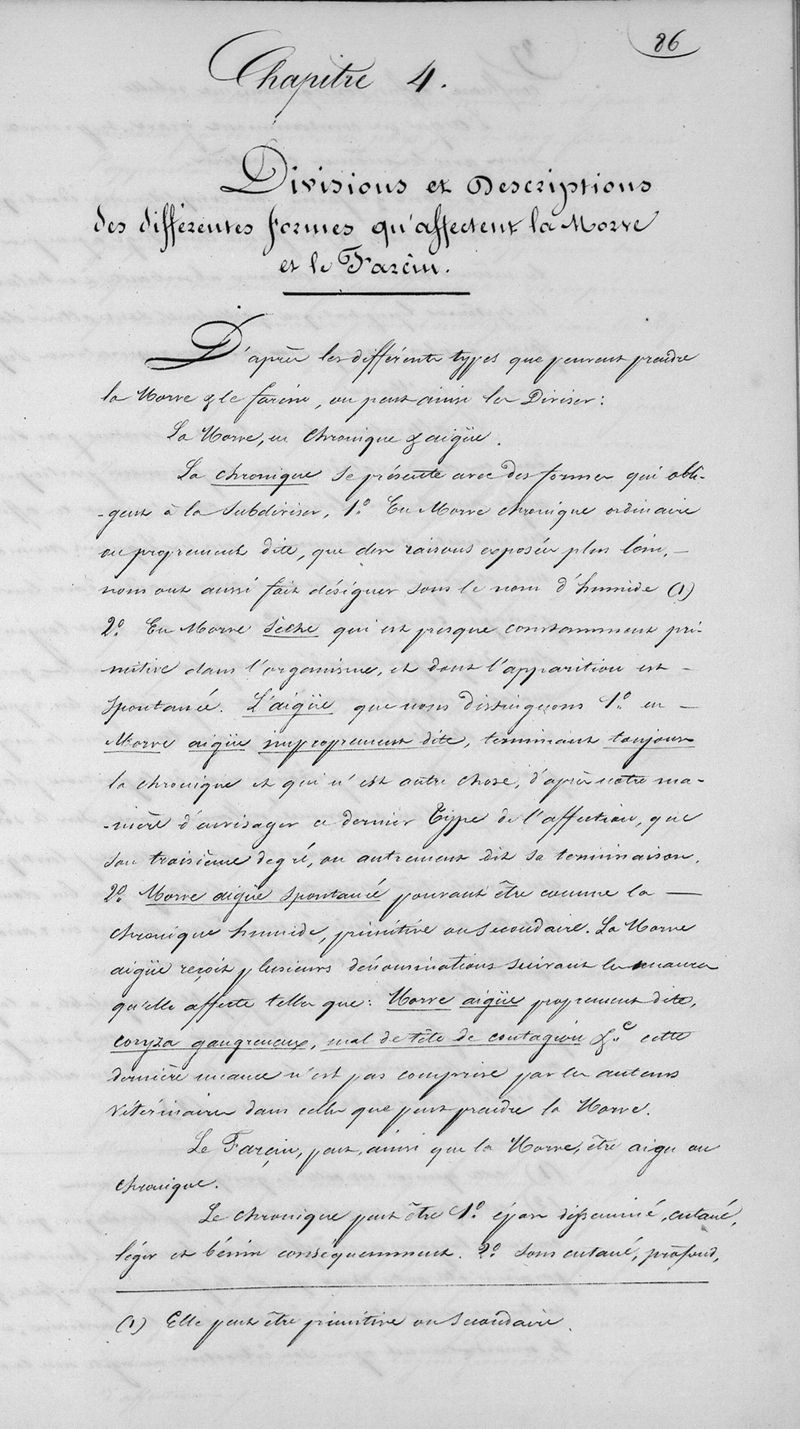 86
Chapitre 4.
Divisions et Descriptions
des différentes formes qu'affectent la Morve
et le Farcin.
D'après les différents types que peuvent prendre
la Morve & le farcin, on peut ainsi les Diviser:
La Morve, en chronique & aigüe.
La chronique se présente avec des formes qui obli-
-gent à la subdiviser, 1.º En Morve chronique ordinaire
ou proprement dite, que des raisons exposées plus loin, —
nous ont aussi fait désigner sous le nom d'humide (1)
2.º En Morve sèche qui est presque constamment pri-
mitive dans l'organisme, et dont l'apparition est —
spontanée. L'aigüe que nous distinguons 1.º en —
Morve aigüe improprement dite, terminant toujours
la chronique et qui n'est autre chose, d'après notre ma-
-nière d'envisager ce dernier Type de l'affection, que
son troisième degré, ou autrement dit sa terminaison.
2.º Morve aigüe spontanée pouvant être comme la —
chronique humide, primitive ou secondaire. La Morve
aigüe reçoit plusieurs dénominations suivant les nuances
qu'elle affecte telles que: Morve aigüe proprement dite,
coryza gangreneux, mal de tête de contagion &.c cette
dernière nuance n'est pas comprise par les auteurs
vétérinaires dans celles que peut prendre la Morve.
Le Farçin, peut, ainsi que la Morve, être aigu ou
chronique.
Le chronique peut être 1.º épars disséminé, cutané,
léger et bénin conséquemment. 2.º sous cutané, profond,
(1) Elle peut être primitive ou secondaire.